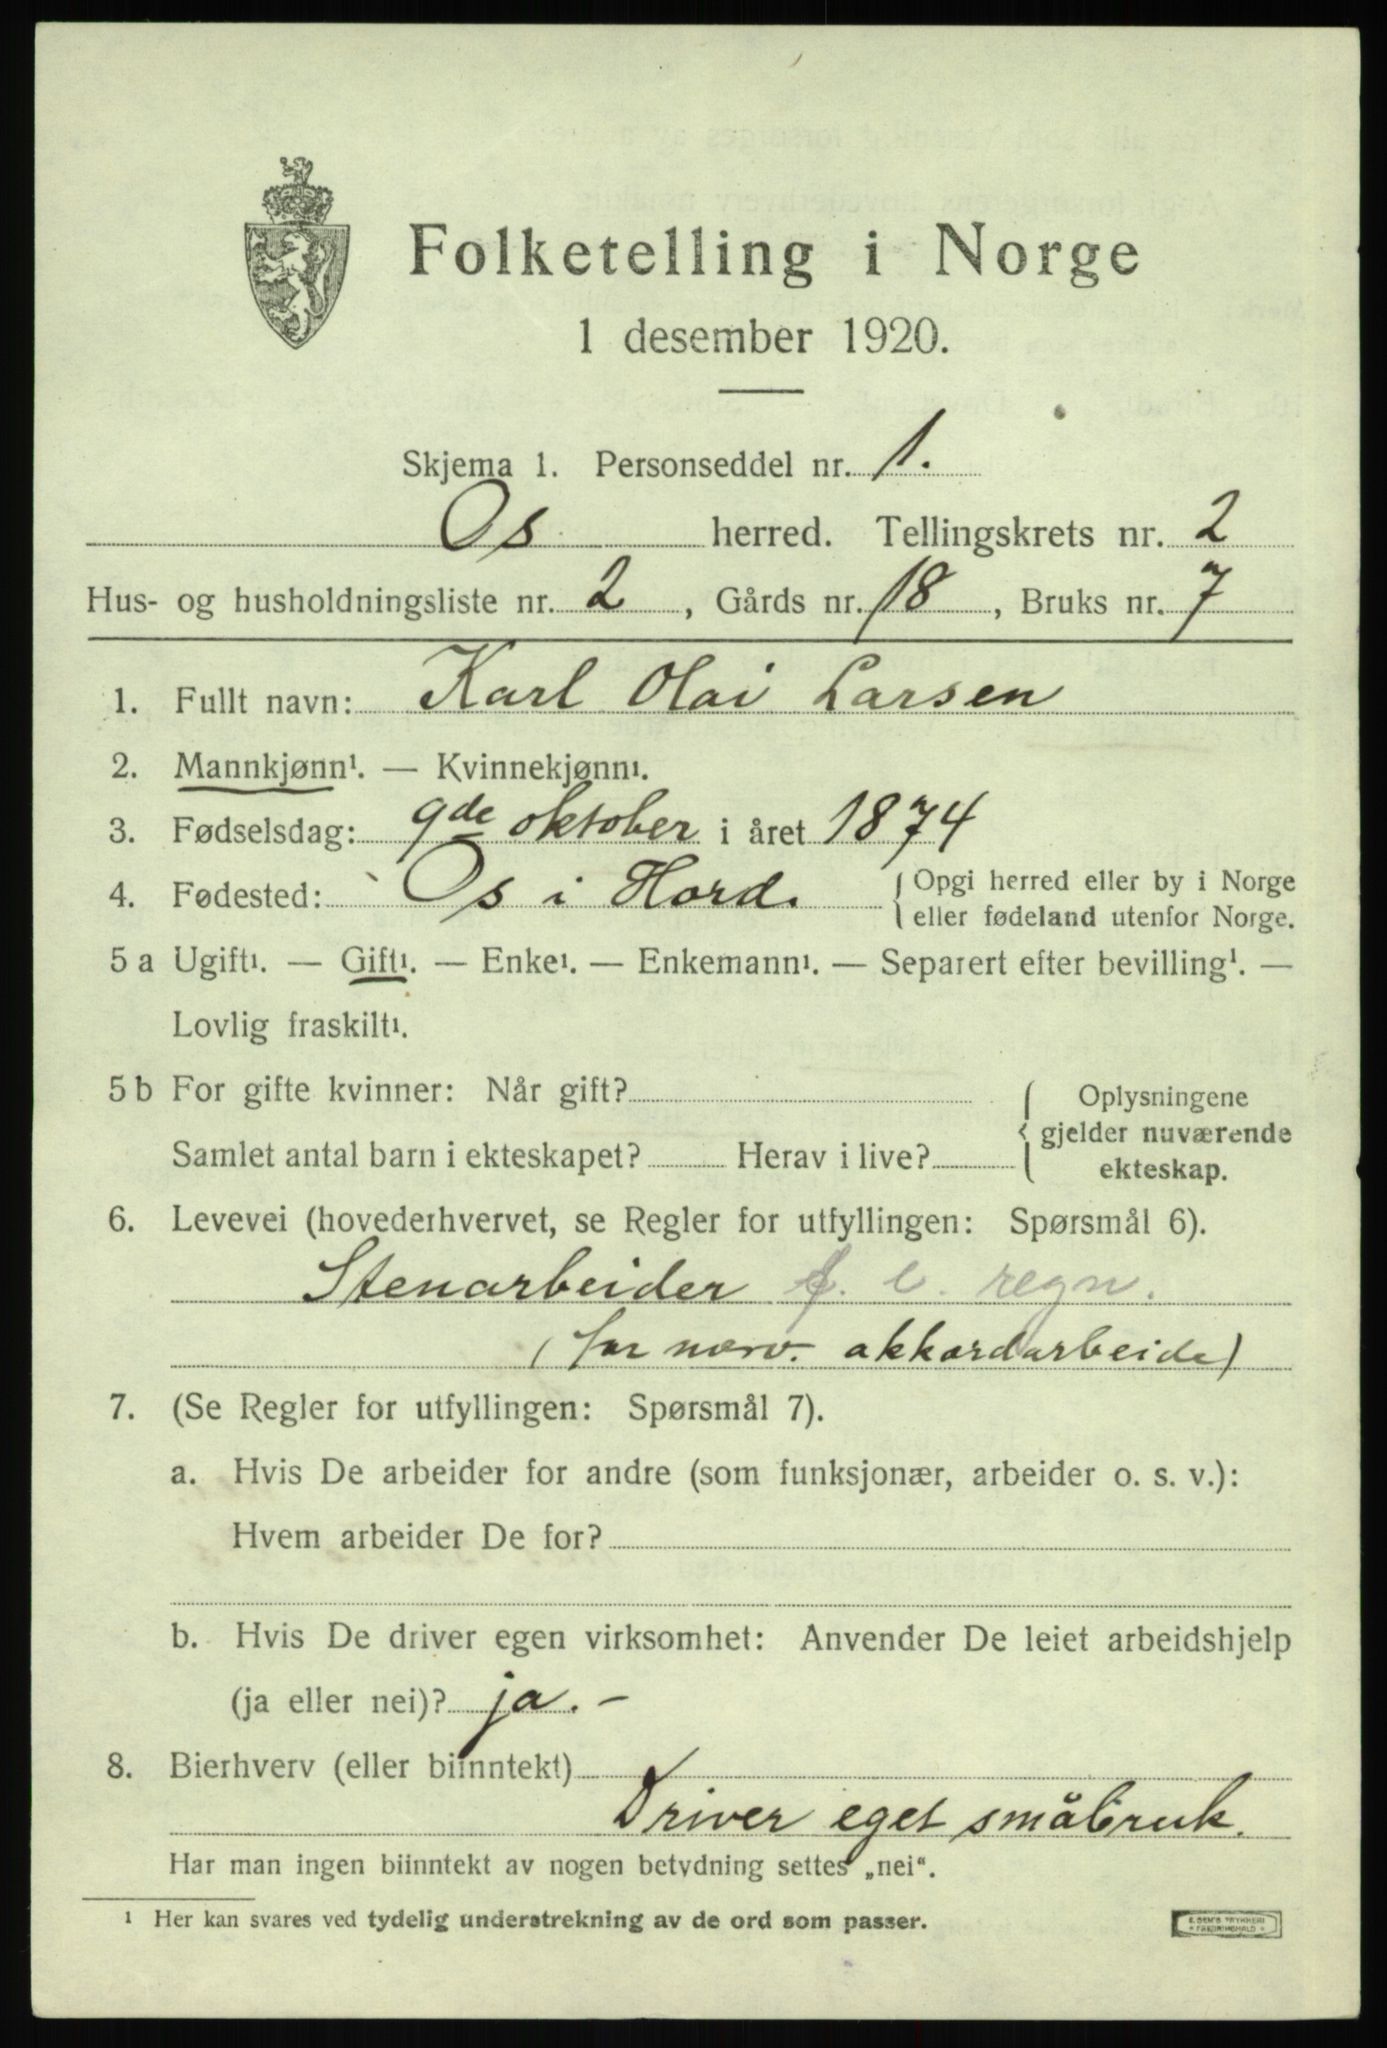 Folketelling i Norge
1 desember 1920.
Skjema 1. Personseddel nr. 1.
Os herred. Tellingskrets nr. 2
Hus- og husholdningsliste nr. 2, Gårds nr. 18, Bruks nr. 7
1. Fullt navn: Karl Olai Larsen
2. Mannkjønn¹. — Kvinnekjønn¹.
3. Fødselsdag: 9de oktober i året 1874
4. Fødested: Os i Hord. { Opgi herred eller by i Norge
eller fødeland utenfor Norge.
5 a Ugift¹. — Gift¹. — Enke¹. — Enkemann¹. — Separert efter bevilling¹. —
Lovlig fraskilt¹.
5 b For gifte kvinner: Når gift?
Samlet antal barn i ekteskapet? Herav i live?
Oplysningene
gjelder nuværende
ekteskap.
6. Levevei (hovederhvervet, se Regler for utfyllingen: Spørsmål 6).
Stenarbeider f. e. regn.
(for nærv. akkordarbeide)
7. (Se Regler for utfyllingen: Spørsmål 7).
a. Hvis De arbeider for andre (som funksjonær, arbeider o. s. v.):
Hvem arbeider De for?
b. Hvis De driver egen virksomhet: Anvender De leiet arbeidshjelp
(ja eller nei)? ja. –
8. Bierhverv (eller biinntekt)
Driver eget småbruk.
Har man ingen biinntekt av nogen betydning settes „nei“.
¹ Her kan svares ved tydelig understrekning av de ord som passer.
E. SEM'S TRYKKERI
* FREDRIKSHALD *